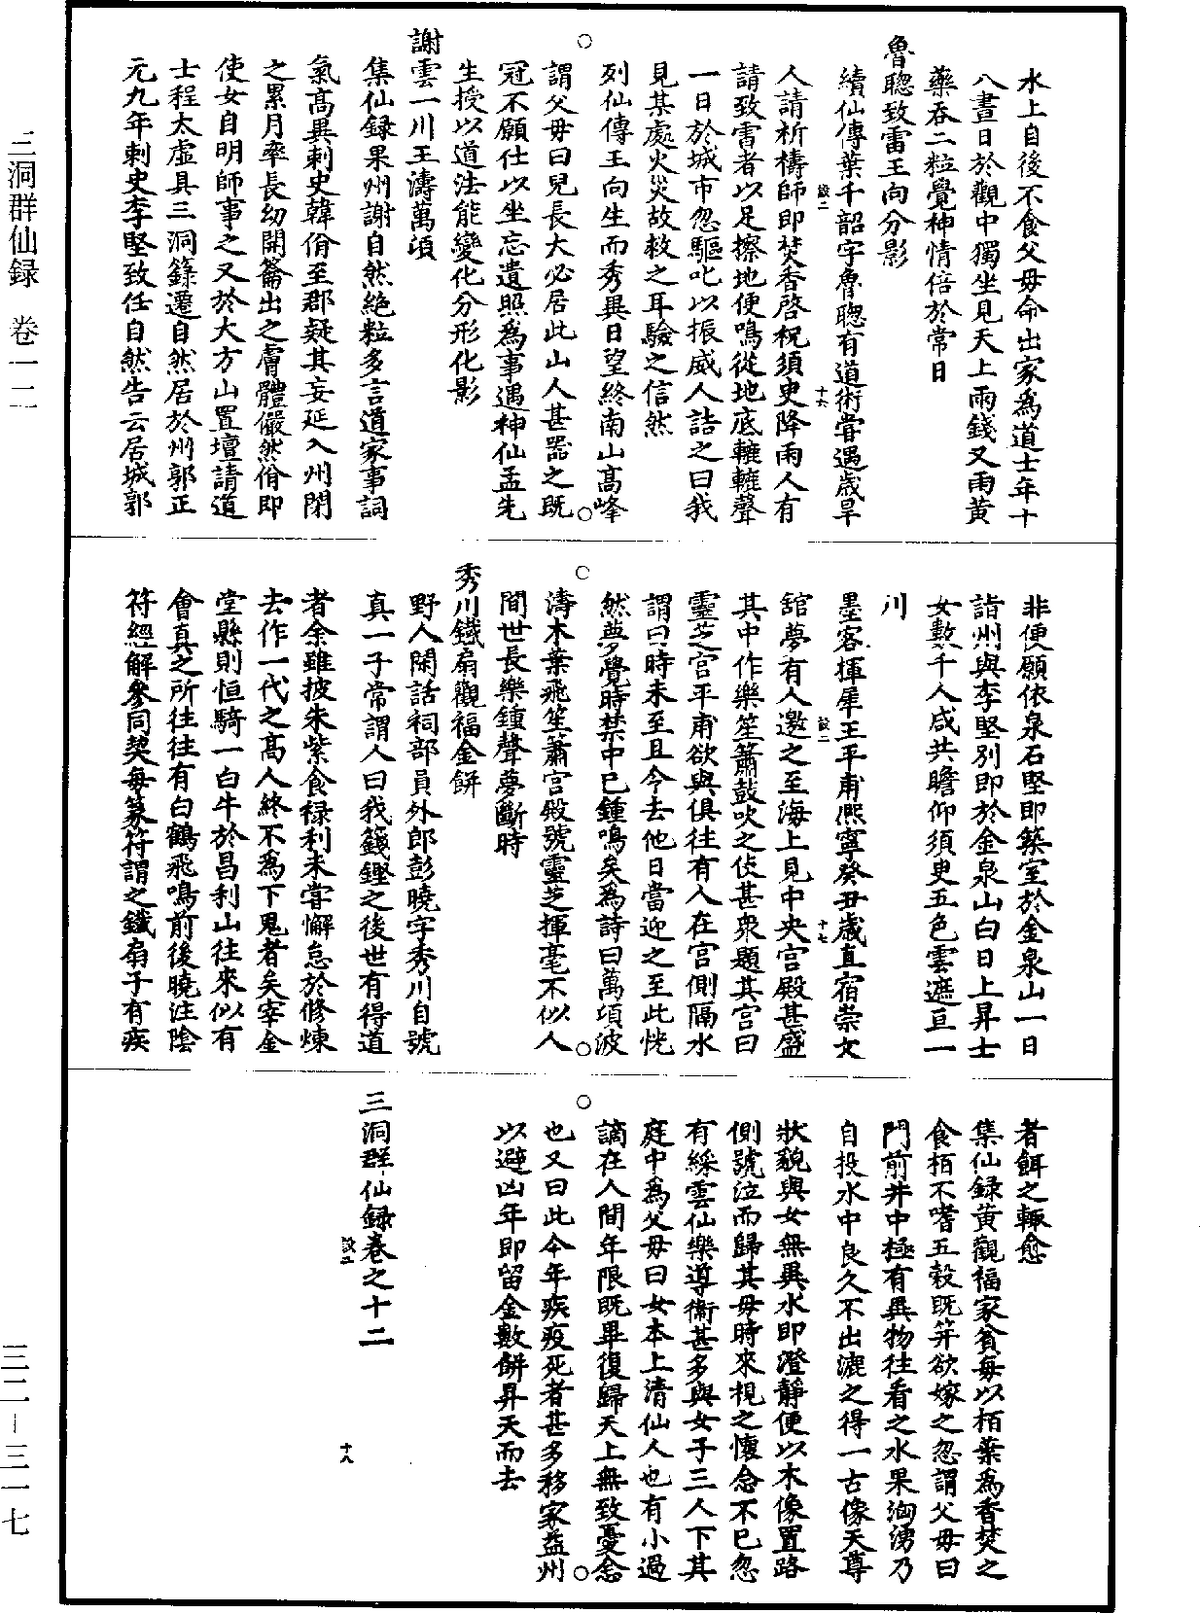 水上自後不食父母命出家為道士年十
八晝日於觀中獨坐見天上雨錢又雨黃
藥吞二粒覺神情倍於常日
魯聰致雷王向分影
續仙傳葉千韶字魯聰有道術嘗遇歲旱
人請祈禱師即焚香啓祝須史降雨人有
請致雷者以足擦地便鳴從地底轆轆聲
一日於城市忽驅叱以振威人詰之曰我
見某處火災故救之耳驗之信然
列仙傳王向生而秀異日望終南山高峰
謂父母曰兒長大必居此山人甚器之既
冠不願仕以坐忘遺照為事遇神仙孟先
生授以道法能變化分形化影
謝雲一川王濤萬頃
集仙録果州謝自然絶粒多言道家事詞
氣高異刺史韓佾至郡疑其妄延入州閉
之累月率長幼開籥出之膚體儼然佾即
使女自明師事之又於大方山置壇請道
士程太虛具三洞籙遷自然居於州郭正
元九年刺史李堅致任自然告云居城郭
非便願依泉石堅即築室於金泉山一日
詣州與李堅別即於金泉山白日上昇士
女數千人咸共瞻仰須史五色雲遮亘一
川
墨客揮犀王平甫熈寧癸丑歲直宿崇文
舘夢有人邀之至海上見中央宫殿甚盛
其中作樂笙簫鼓吹之伎甚衆題其宫曰
靈芝宫平甫欲與俱往有人在宫側隔水
謂曰時未至且令去他日當迎之至此恍
然夢覺時禁中已鍾鳴矣為詩曰萬頃波
濤木葉飛笙簫宫殿號靈芝揮毫不似人
間世長樂鍾聲夢斷時
秀川鐵扇觀福金餅
野人閑話祠部員外郎彭曉字秀川自號
真一子常謂人曰我籛鏗之後世有得道
者余雖披朱紫食祿利未嘗懈怠於修煉
去作一代之高人終不為下鬼者矣宰金
堂縣則恒騎一白牛於昌利山往來似有
會真之所往往有白鶴飛鳴前後曉注陰
符經解參同契每篆符謂之鐵扇子有疾
者餌之輒愈
集仙録黃觀福家貧每以栢葉為香焚之
食栢不嗜五穀既笄欲嫁之忽謂父母曰
門前井中極有異物往看之水果洶湧乃
自投水中良久不出漉之得一古像天尊
狀貌與女無異水即澄靜便以木像置路
側號泣而歸其母時來視之懷念不已忽
有綵雲仙樂導衛甚多與女子三人下其
庭中為父母曰女本上清仙人也有小過
謫在人間年限既畢復歸天上無致憂念
也又曰此今年疾疫死者甚多移家益州
以避凶年即留金數餅昇天而去
三洞群仙録卷之十二
設二
十六
設二
十七
設二
十八
三洞群仙録 卷一二
三二-三一七